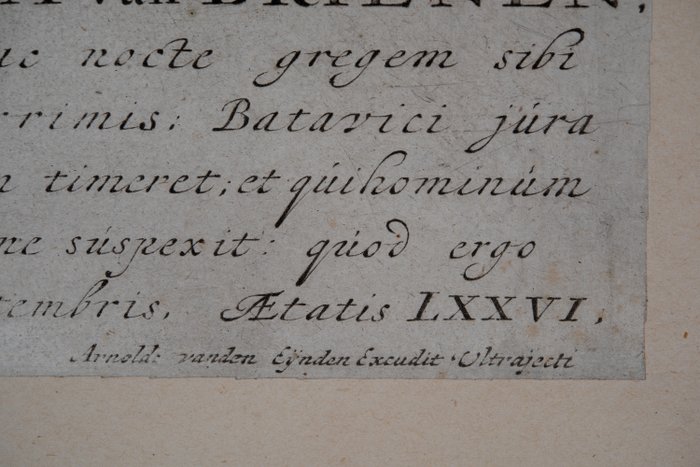 van BRIENEN,
uc nocte gregem sibi
rrimis; Batavici júra
n timeret; et qúihominúm
ne súspexit: qúod ergo
tembris, Ætatis LXXVI,
Arnold: vanden Eÿnden Excudit Ultrajecti